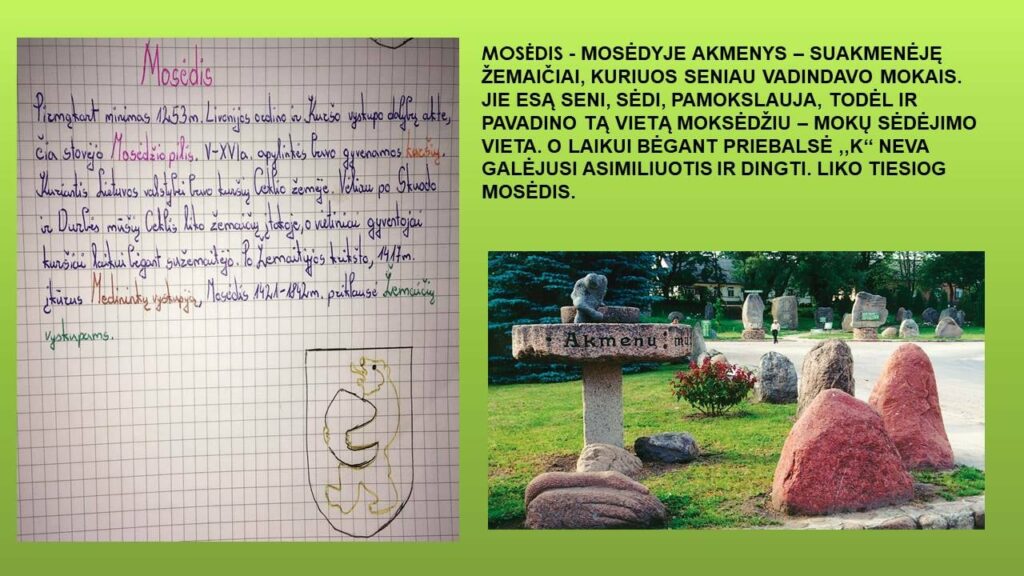 Mosėdis
Pirmąkart minimas 1253m. Livonijos ordino ir Kuršo vyskupo dalybų akte,
čia stovėjo Mosėdžio pilis. V-XVIa. apylinkės buvo gyvenamos kuršių.
Kuriantis Lietuvos valstybei buvo kuršių Ceklio žemėje. Vėliau po Skuodo
ir Durbės mūšių Ceklis liko žemaičių įtakoje, o vietiniai gyventojai
kuršiai laikui bėgant sužemaitėjo. Po Žemaitijos krikšto, 1417m.
įkūrus Medininkų vyskupiją, Mosėdis 1421-1842m. priklausė Žemaičių
vyskupams.
MOSĖDIS - MOSĖDYJE AKMENYS – SUAKMENĖJĘ
ŽEMAIČIAI, KURIUOS SENIAU VADINDAVO MOKAIS.
JIE ESĄ SENI, SĖDI, PAMOKSLAUJA, TODĖL IR
PAVADINO TĄ VIETĄ MOKSĖDŽIU – MOKŲ SĖDĖJIMO
VIETA. O LAIKUI BĖGANT PRIEBALSĖ ,,K“ NEVA
GALĖJUSI ASIMILIUOTIS IR DINGTI. LIKO TIESIOG
MOSĖDIS.
Akmenų mu